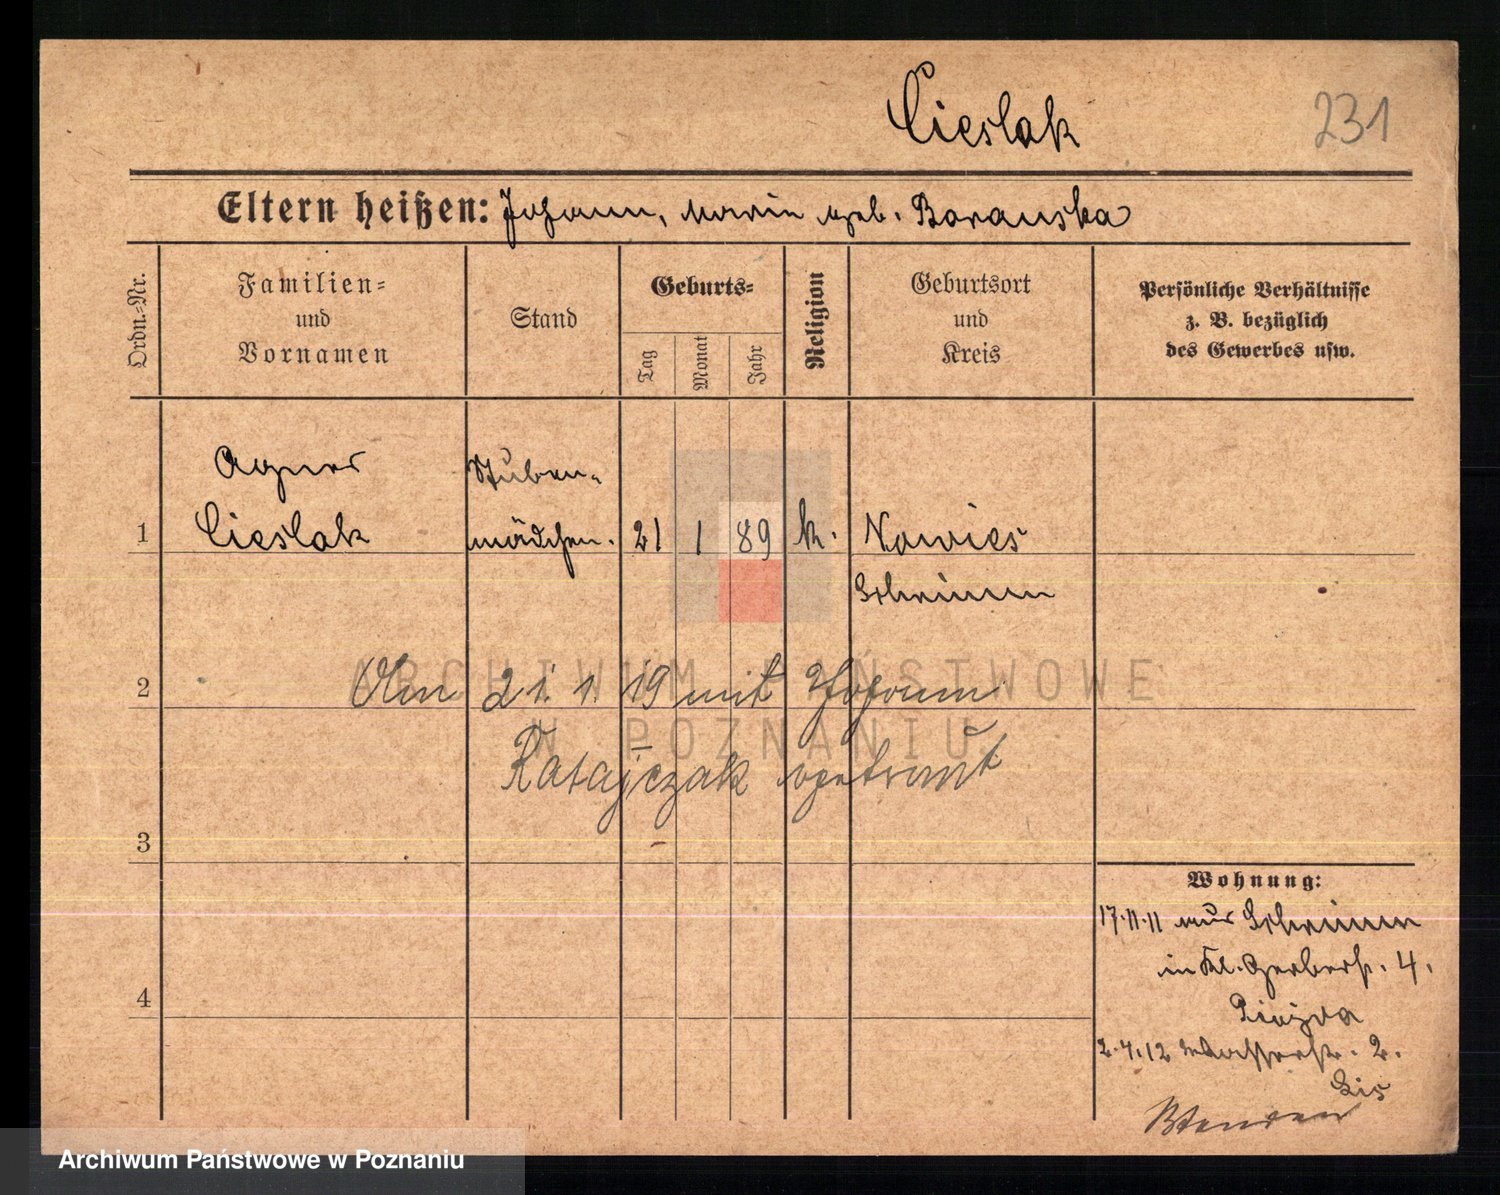 Cieslak 231
Eltern heißen: Johann, Marie geb. Boranska
Ordn.-Nr.
Familien-
und
Vornamen
Stand
Geburts-
Tag
Monat
Jahr
Religion
Geburtsort
und
Kreis
Persönliche Verhältnisse
z. B. bezüglich
des Gewerbes usw.
Agnes Stuben-
1 Cieslak mädchen. 21 1 89 k. Nowies
Schrimm
2 Am 21. 1. 19 mit Johann
Ratajczak getraut
3
4
Wohnung:
17.11.11 aus Schrimm
in Kl. Gerberstr. 4.
2.4.12 2.
ARCHIWUM PAŃSTWOWE
W POZNANIU
Archiwum Państwowe w Poznaniu